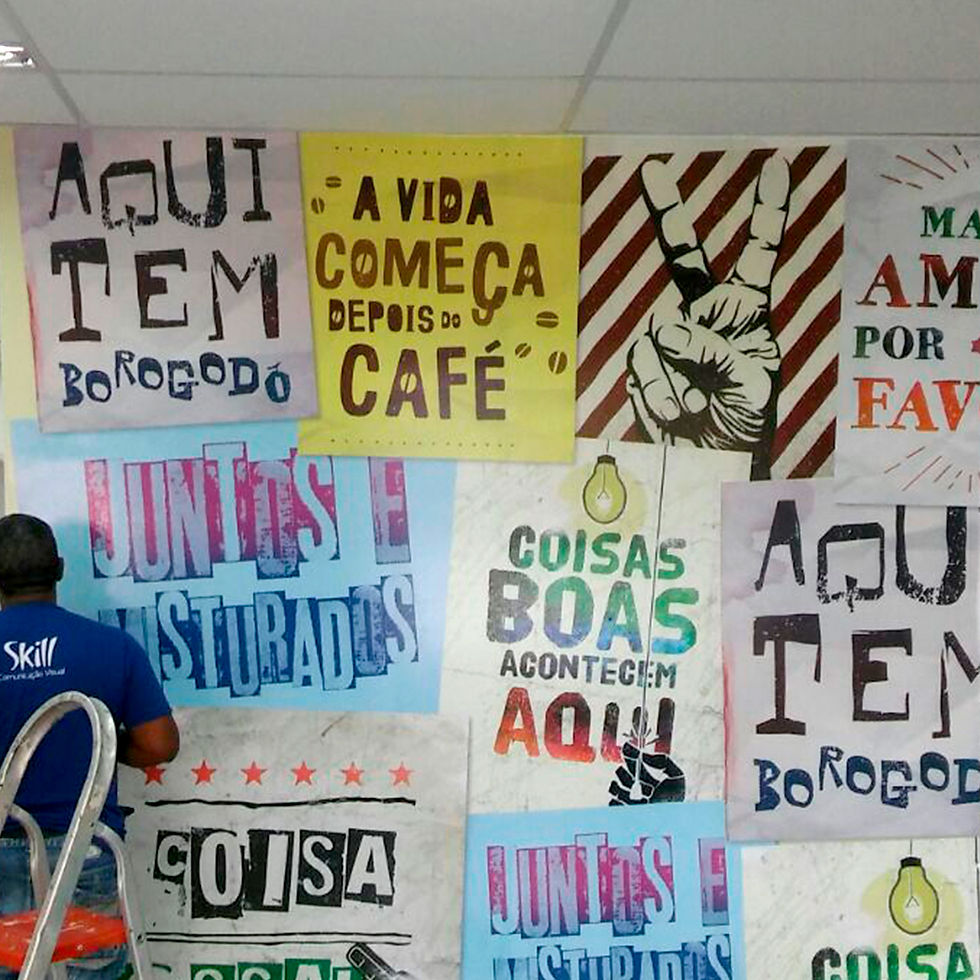 AQUI
TEM
BOROGODÓ
A VIDA
COMEÇA
DEPOIS DO
CAFÉ
MA
AM
POR
FAV
JUNTOS E
MISTURADOS
COISAS
BOAS
ACONTECEM
AQUI
AQU
TEM
BOROGOD
Skill
Comunicação Visual
COISA
JUNTOS E
MISTURADOS
COISA